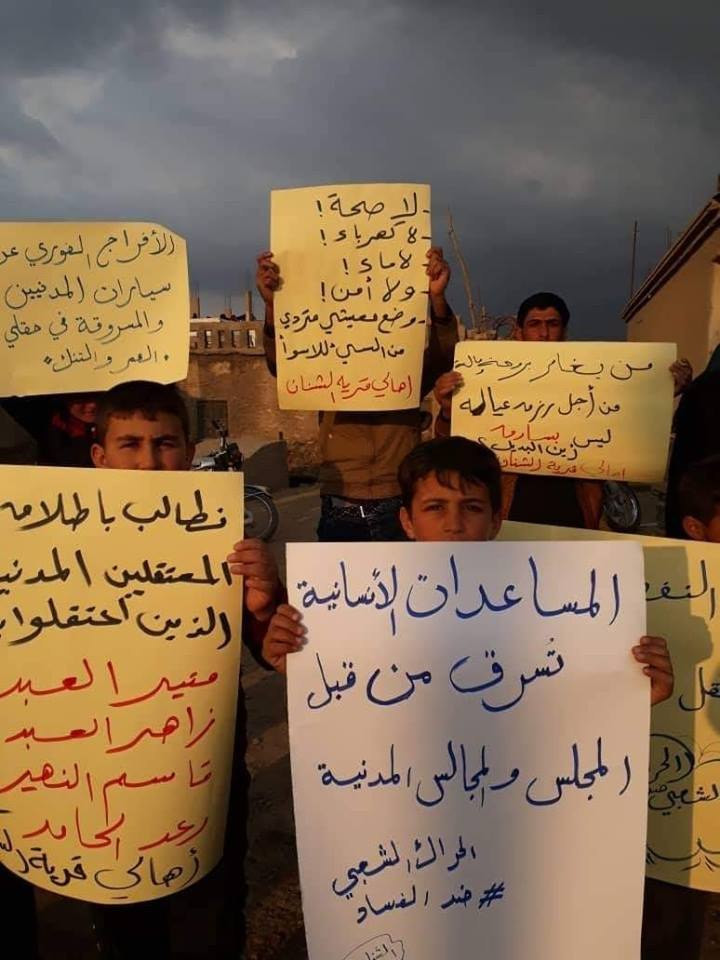 الأفراج الفوري عن
سيارات المدنيين
والمسروقة في حقلي
العمر والتنك.
- لا صحة!
- لا كهرباء!
- لا ماء!
- ولا أمن!
- وضع معيشي متردي
من السيئ للاسوأ
اهالي قرية الشنان
من يغامر بروحه
من أجل رزمه عياله
ليس بسارق
أين البديل؟
اهالي قرية الشنان
نطالب باطلاق
المعتقلين المدنيين
الذين اعتقلوا
العبد
زاهر العبد
قاسم النهير
رعد الحامد
أهالي قرية
المساعدات الأنسانية
تُسرق من قبل
المجلس والمجالس المدنية
الحراك الشعبي
#ضد الفساد
الشنان
النفط
الشعبي